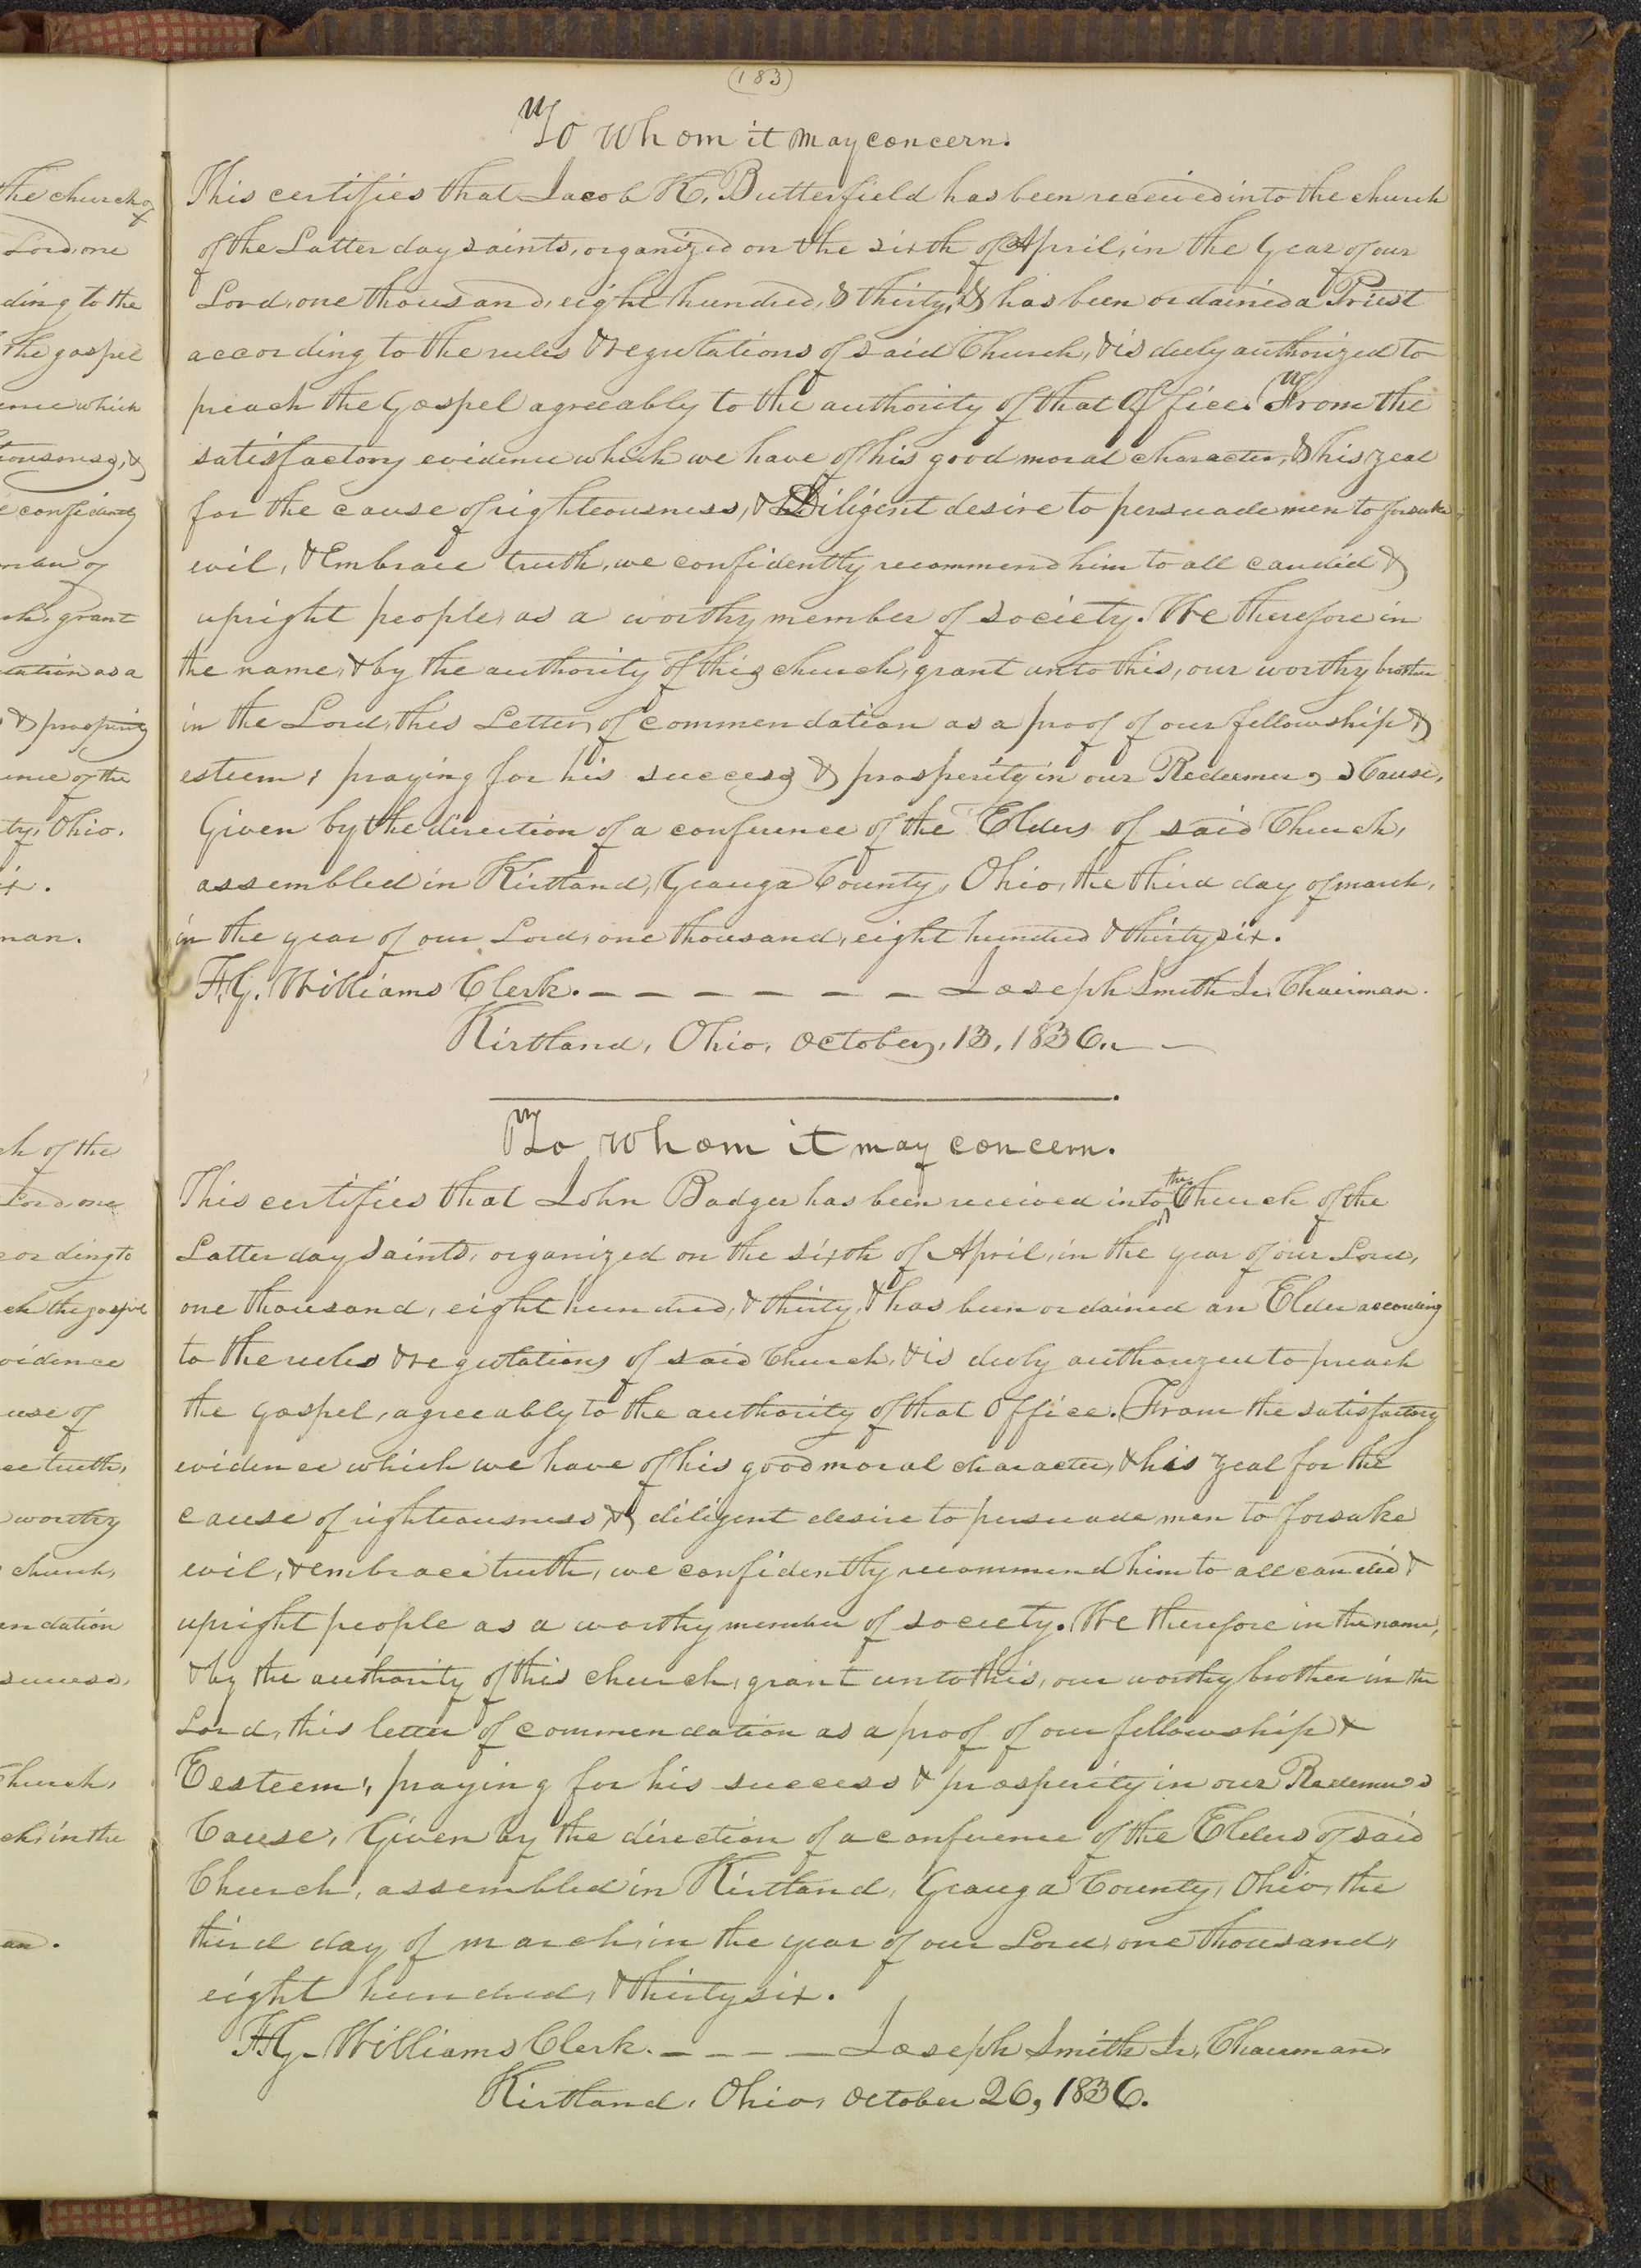 (183)
To Whom it may concern.
This certifies that Jacob K. Butterfield has been received into the church
of the Latter day saints, organized on the sixth of April, in the year of our
Lord, one thousand, eight hundred, & thirty, & has been ordained a Priest
according to the rules & regulations of said Church, & is duly authorized to
preach the Gospel agreeably to the authority of that Office. From the
satisfactory evidence which we have of his good moral character, & his zeal
for the cause of righteousness, & Diligent desire to persuade men to forsake
evil, & Embrace truth, we confidently recommend him to all candid &
upright people, as a worthy member of society. We therefore in
the name, & by the authority of this church, grant unto this, our worthy brother
in the Lord, this Letter, of commendation as a proof of our fellowship &
esteem; praying for his success & prosperity in our Redeemer,s Cause,
Given by the direction of a conference of the Elders of said Church,
assembled in Kirtland, Geauga County, Ohio, the third day of march,
in the year of our Lord, one thousand, eight hundred & thirty six.
F.G. Williams Clerk. – – – – – – – Joseph Smith Jr. Chairman.
Kirtland, Ohio, October, 13, 1836.
To whom it may concern.
This certifies that John Badger has been received into the Church of the
Latter day Saints, organized on the sixth of April, in the year of our Lord,
one thousand, eight hundred, & thirty, & has been ordained an Elder according
to the rules & regulations of said Church, & is duly authorized to preach
the Gospel, agreeably to the authority of that Office. From the satisfactory
evidence which we have of his good moral character, & his zeal for the
cause of righteousness & diligent desire to persuade men to forsake
evil, & embrace truth, we confidently recommend him to all candid &
upright people as a worthy member of society. We therefore in the name,
& by the authority of this church, grant unto this, our worthy brother in the
Lord, this letter of commendation as a proof of our fellowship &
Eesteem, praying for his success & prosperity in our Redeemers
Cause, Given by the direction of a conference of the Elders of said
Church, assembled in Kirtland, Geauga County, Ohio, the
third day of march, in the year of our Lord, one thousand,
eight hundred, & thirty six.
F.G. Williams Clerk. – – – – Joseph Smith Jr. Chairman.
Kirtland, Ohio, October 26, 1836.